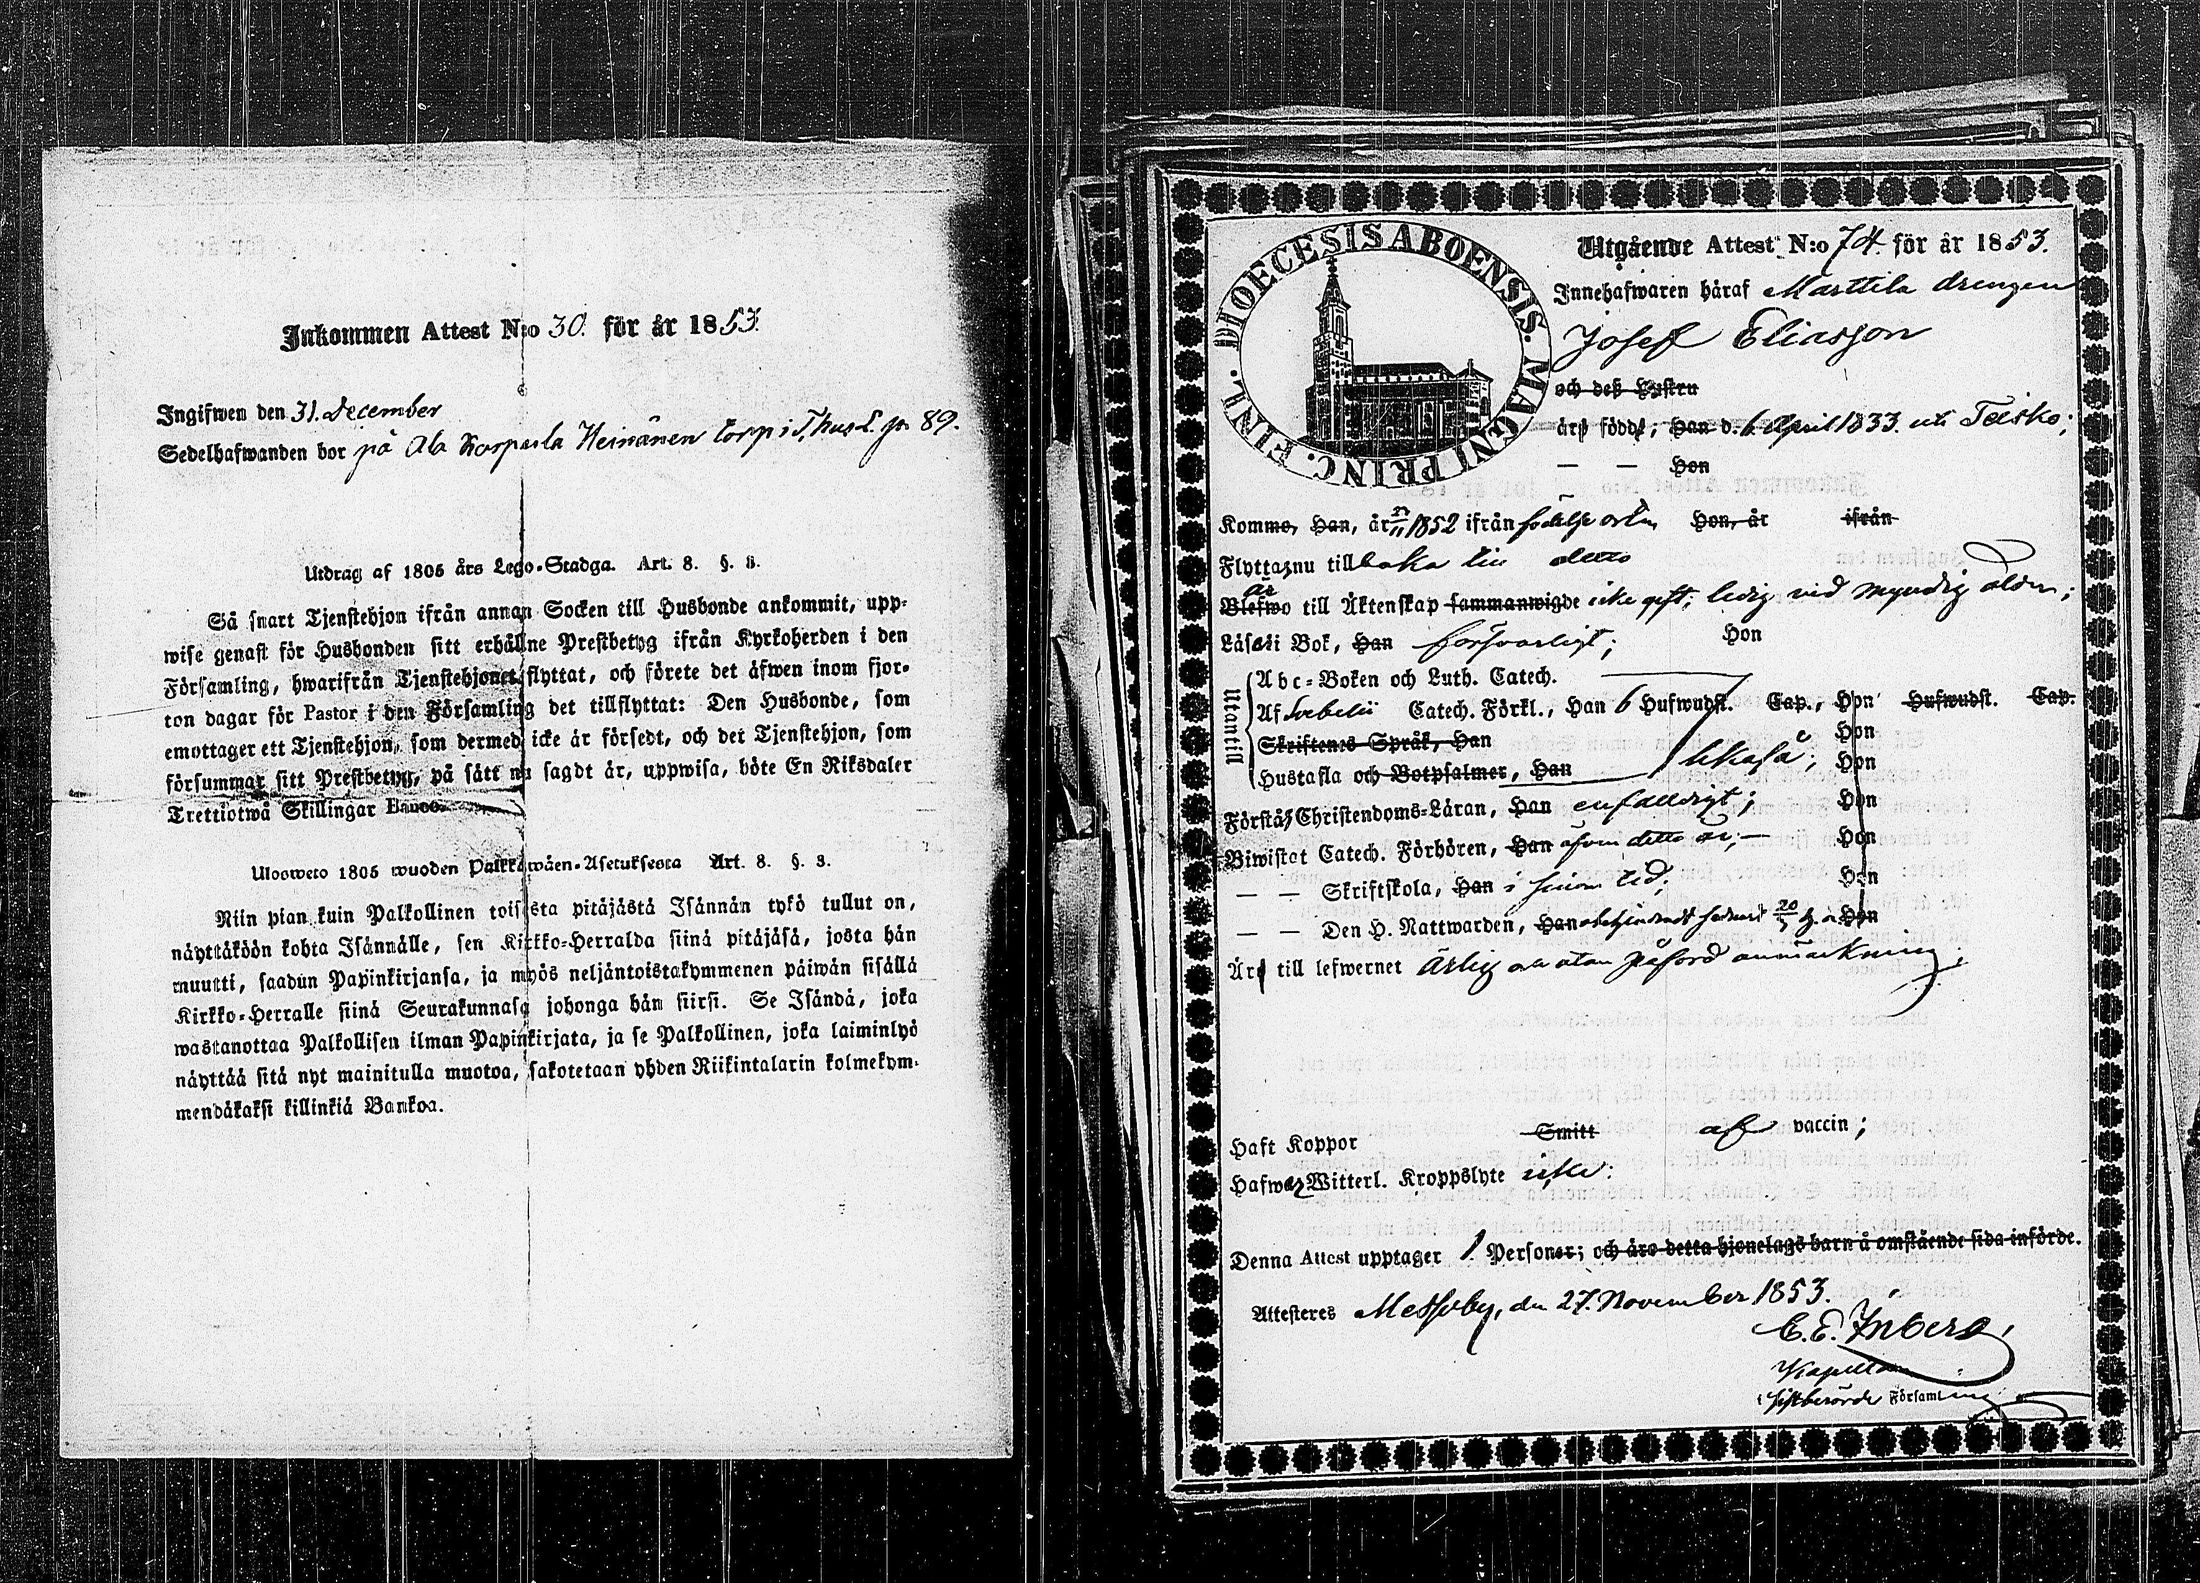 Inkommen Attest N:o 30. för år 1853.
Ingifwen den 31. December
Sedelhafwanden bor på Ala Korpula Heinänen torp i T, hus L. p. 89.
Utdrag af 1805 års Lego-Stadga. Art. 8. §. 8.
Så snart Tjenstehjon ifrån annan Socken till Husbonde ankommit, upp-
wise genast för Husbonden sitt erhållne Prestbetyg ifrån Kyrkoherden i den
Församling, hwarifrån Tjenstehjonet flyttat, och förete det äfwen inom fjor-
ton dagar för Pastor i den Församling det tillflyttat: Den Husbonde, som
emottager ett Tjenstehjon, som dermed icke är försedt, och det Tjenstehjon, som
försummar sitt Prestbetyg, på sätt nu sagdt är, uppwisa, böte En Riksdaler
Trettiotwå Skillingar Banco.
Ulosweto 1805 wuoden Palkkawäen-Asetuksesta Art. 8. §. 8.
Niin pian kuin Palkollinen toisesta pitäjästä Isännän tykö tullut on,
näyttäköön kohta Isännälle, sen Kirkko-Herralda siinä pitäjäsä, josta hän
muutti, saadun Papinkirjansa, ja myös neljäntoistakymmenen päiwän sisällä
Kirkko-Herralle siinä Seurakunnasa johonga hän siirsi. Se Isändä, joka
wastanottaa Palkollisen ilman Papinkirjata, ja se Palkollinen, joka laiminlyö
näyttää sitä nyt mainitulla muotoa, sakotetaan yhden Riikintalarin kolmekym-
mendäkaksi killinkiä Bankoa.
DIOECESIS ABOENSIS. MAGNI PRINC. FINL.
Utgående Attest N:o 74. för år 1853.
Innehafwaren häraf Marttila drengen
Josef Eliasson
och deß Hustru
äro födde; Han d. 6 April 1833. uti Teisko;
— — Hon
Kommo, Han, år 1852 ifrån födelse orten Hon, år ifrån
Flytta nu tillbaka till detto
är
Blefwo till Äktenskap sammanwigde icke gift; ledig vid myndig ålder;
Läsa i Bok, Han försvarligt; Hon
Utantill
Abc-Boken och Luth. Catech.
Af Svebelii Catech. Förkl., Han 6 Hufwudst. Cap., Hon Hufwudst. Cap.
Skriftenes Språk, Han Hon
Hustafla och Botpsalmer, Han likaså; Hon
Förstå Christendoms-Läran, Han enfaldigt; Hon
Biwistat Catech. Förhören, Han äfven detta år; — Hon
— — Skriftskola, Han i sinom tid; Hon
— — Den H. Nattwarden, Han obehindradt sednast Hon
Äro till lefwernet ärlig och utan påförd anmärkning;
Haft Koppor Smitt af vaccin;
Hafwa Witterl. Kroppslyte icke:
Denna Attest upptager 1. Personer; och äro detta hjonelags barn å omstående sida införde.
Attesteres Messuby, den 27. November 1853.
C. E. Inberg
Kapellan
i sistberörde Församling